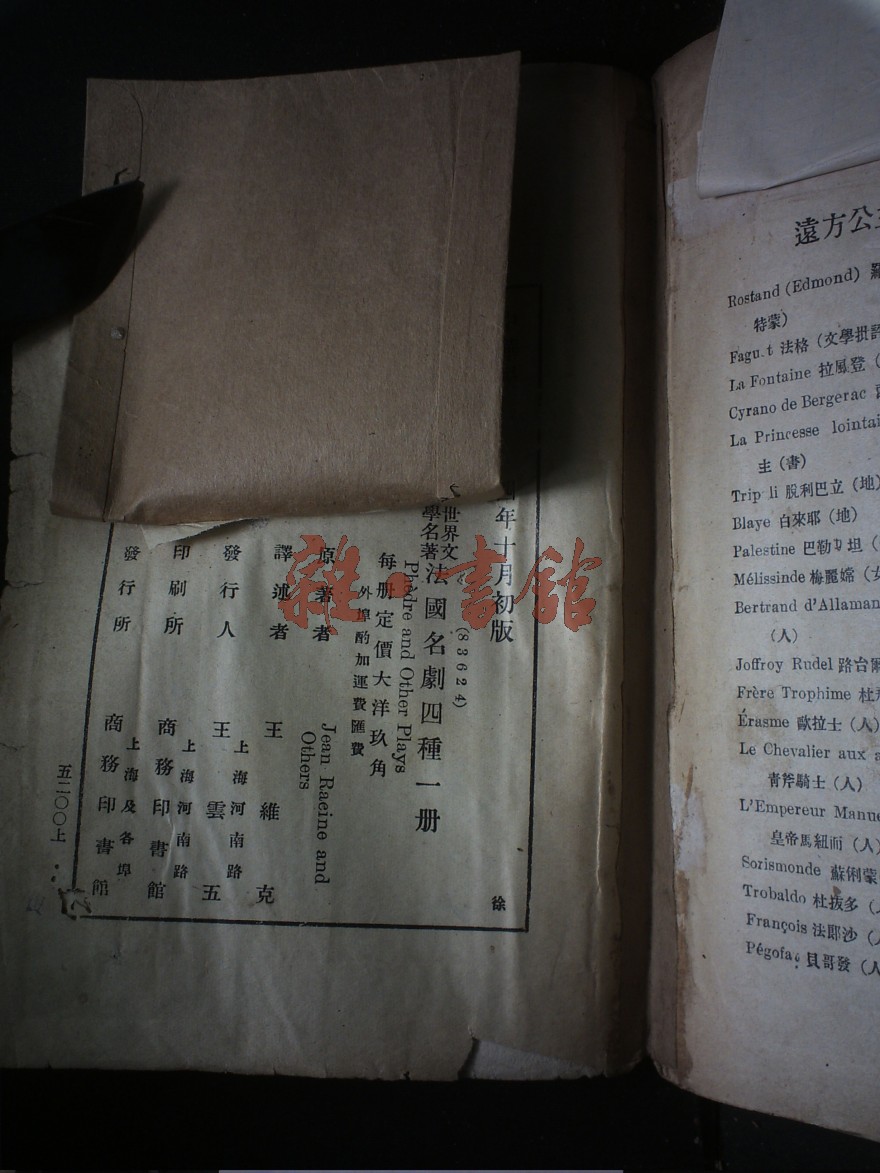 年十月初版
世界文
學名著 法國名劇四種一册
(83624)
Phèdre and Other Plays
每册定價大洋玖角
外埠酌加運費匯費
原著者 Jean Racine and Others
譯述者 王維克
發行人 王雲五
上海河南路
印刷所 商務印書館
上海河南路
發行所 商務印書館
上海及各埠
徐
五二〇〇上
雜·書館
遠方公
Rostand (Edmond)
特蒙)
Fagu.t 法格 (文學批評
La Fontaine 拉風登 (
Cyrano de Bergerac
La Princesse lointai
主 (書)
Trip li 脫利巴立 (地)
Blaye 白來耶 (地)
Palestine 巴勒 坦 (
Mélissinde 梅麗嫦 (女
Bertrand d'Allaman
(人)
Joffroy Rudel 路台爾
Frère Trophime 杜
Érasme 歐拉士 (人)
Le Chevalier aux a
青斧騎士 (人)
L'Empereur Manue
皇帝馬紐而 (人)
Sorismonde 蘇俐蒙
Trobaldo 杜拔多 (
François 法郎沙 (
Pégofa 貝哥發 (人